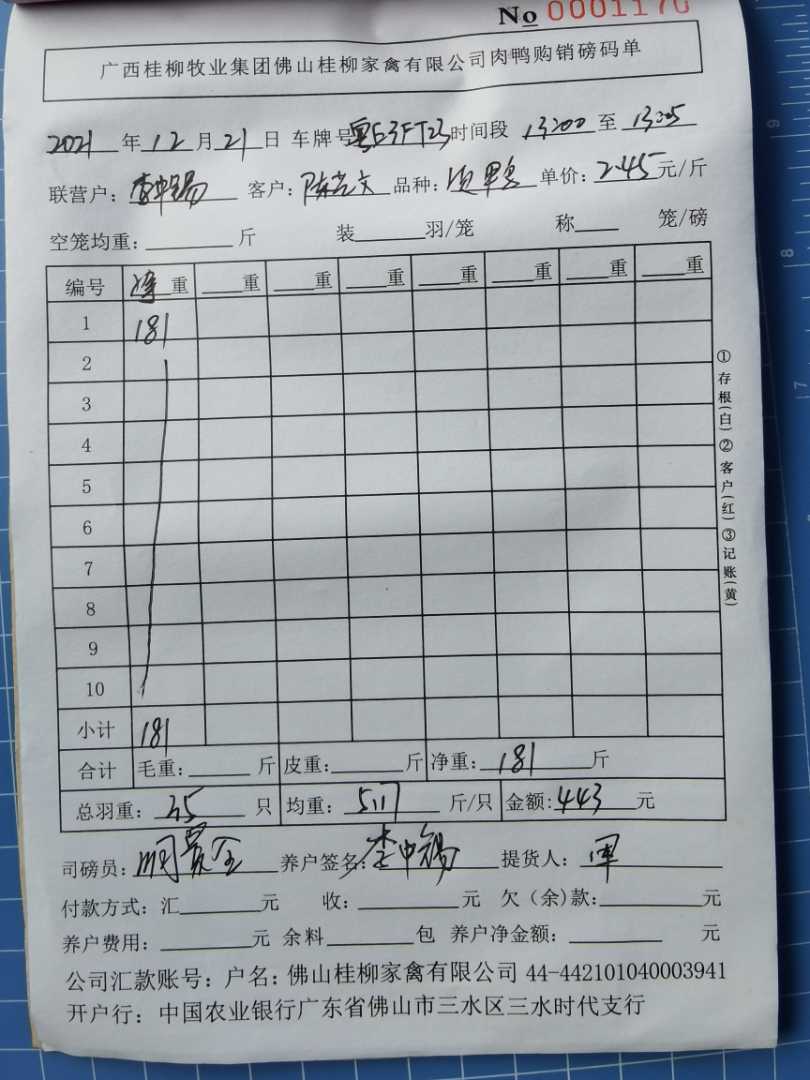 No 0001170
广西桂柳牧业集团佛山桂柳家禽有限公司肉鸭购销磅码单
2021年12月21日 车牌号粤E3FT23时间段 13:00至13:05
联营户:李中锡 客户:陈光文 品种: 单价:2.45元/斤
空笼均重:斤 装羽/笼 称笼/磅
编号 净重 重 重 重 重 重 重 重
1 181
2
3
4
5
6
7
8
9
10
小计 181
合计 毛重:斤 皮重:斤 净重:181斤
总羽重:35只 均重:5.17斤/只 金额:443元
司磅员: 养户签名:李中锡 提货人:
付款方式:汇元 收:元 欠(余)款:元
养户费用:元 余料包 养户净金额:元
公司汇款账号:户名:佛山桂柳家禽有限公司 44-442101040003941
开户行:中国农业银行广东省佛山市三水区三水时代支行
①存根(白)②客户(红)③记账(黄)